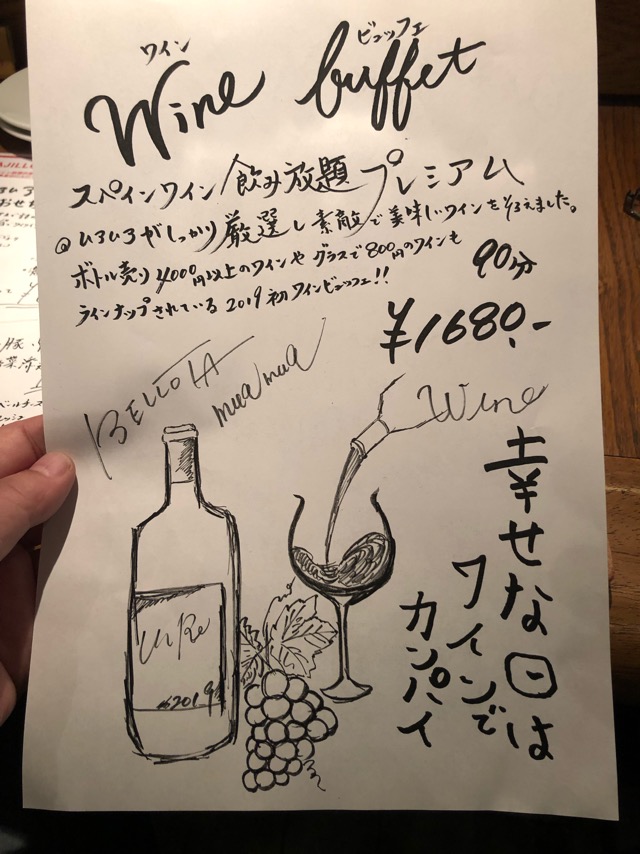 ワイン ビュッフェ
Wine buffet
スペインワイン飲み放題プレミアム
ひろひろがしっかり厳選し素敵で美味しいワインをそろえました。
ボトル売り4000円以上のワインやグラスで800円のワインも
ラインナップされている2019初ワインビュッフェ!!
90分
¥1680.-
BELLOTA
mua mua
Wine
幸せな日は
ワインで
カンパイ
2019